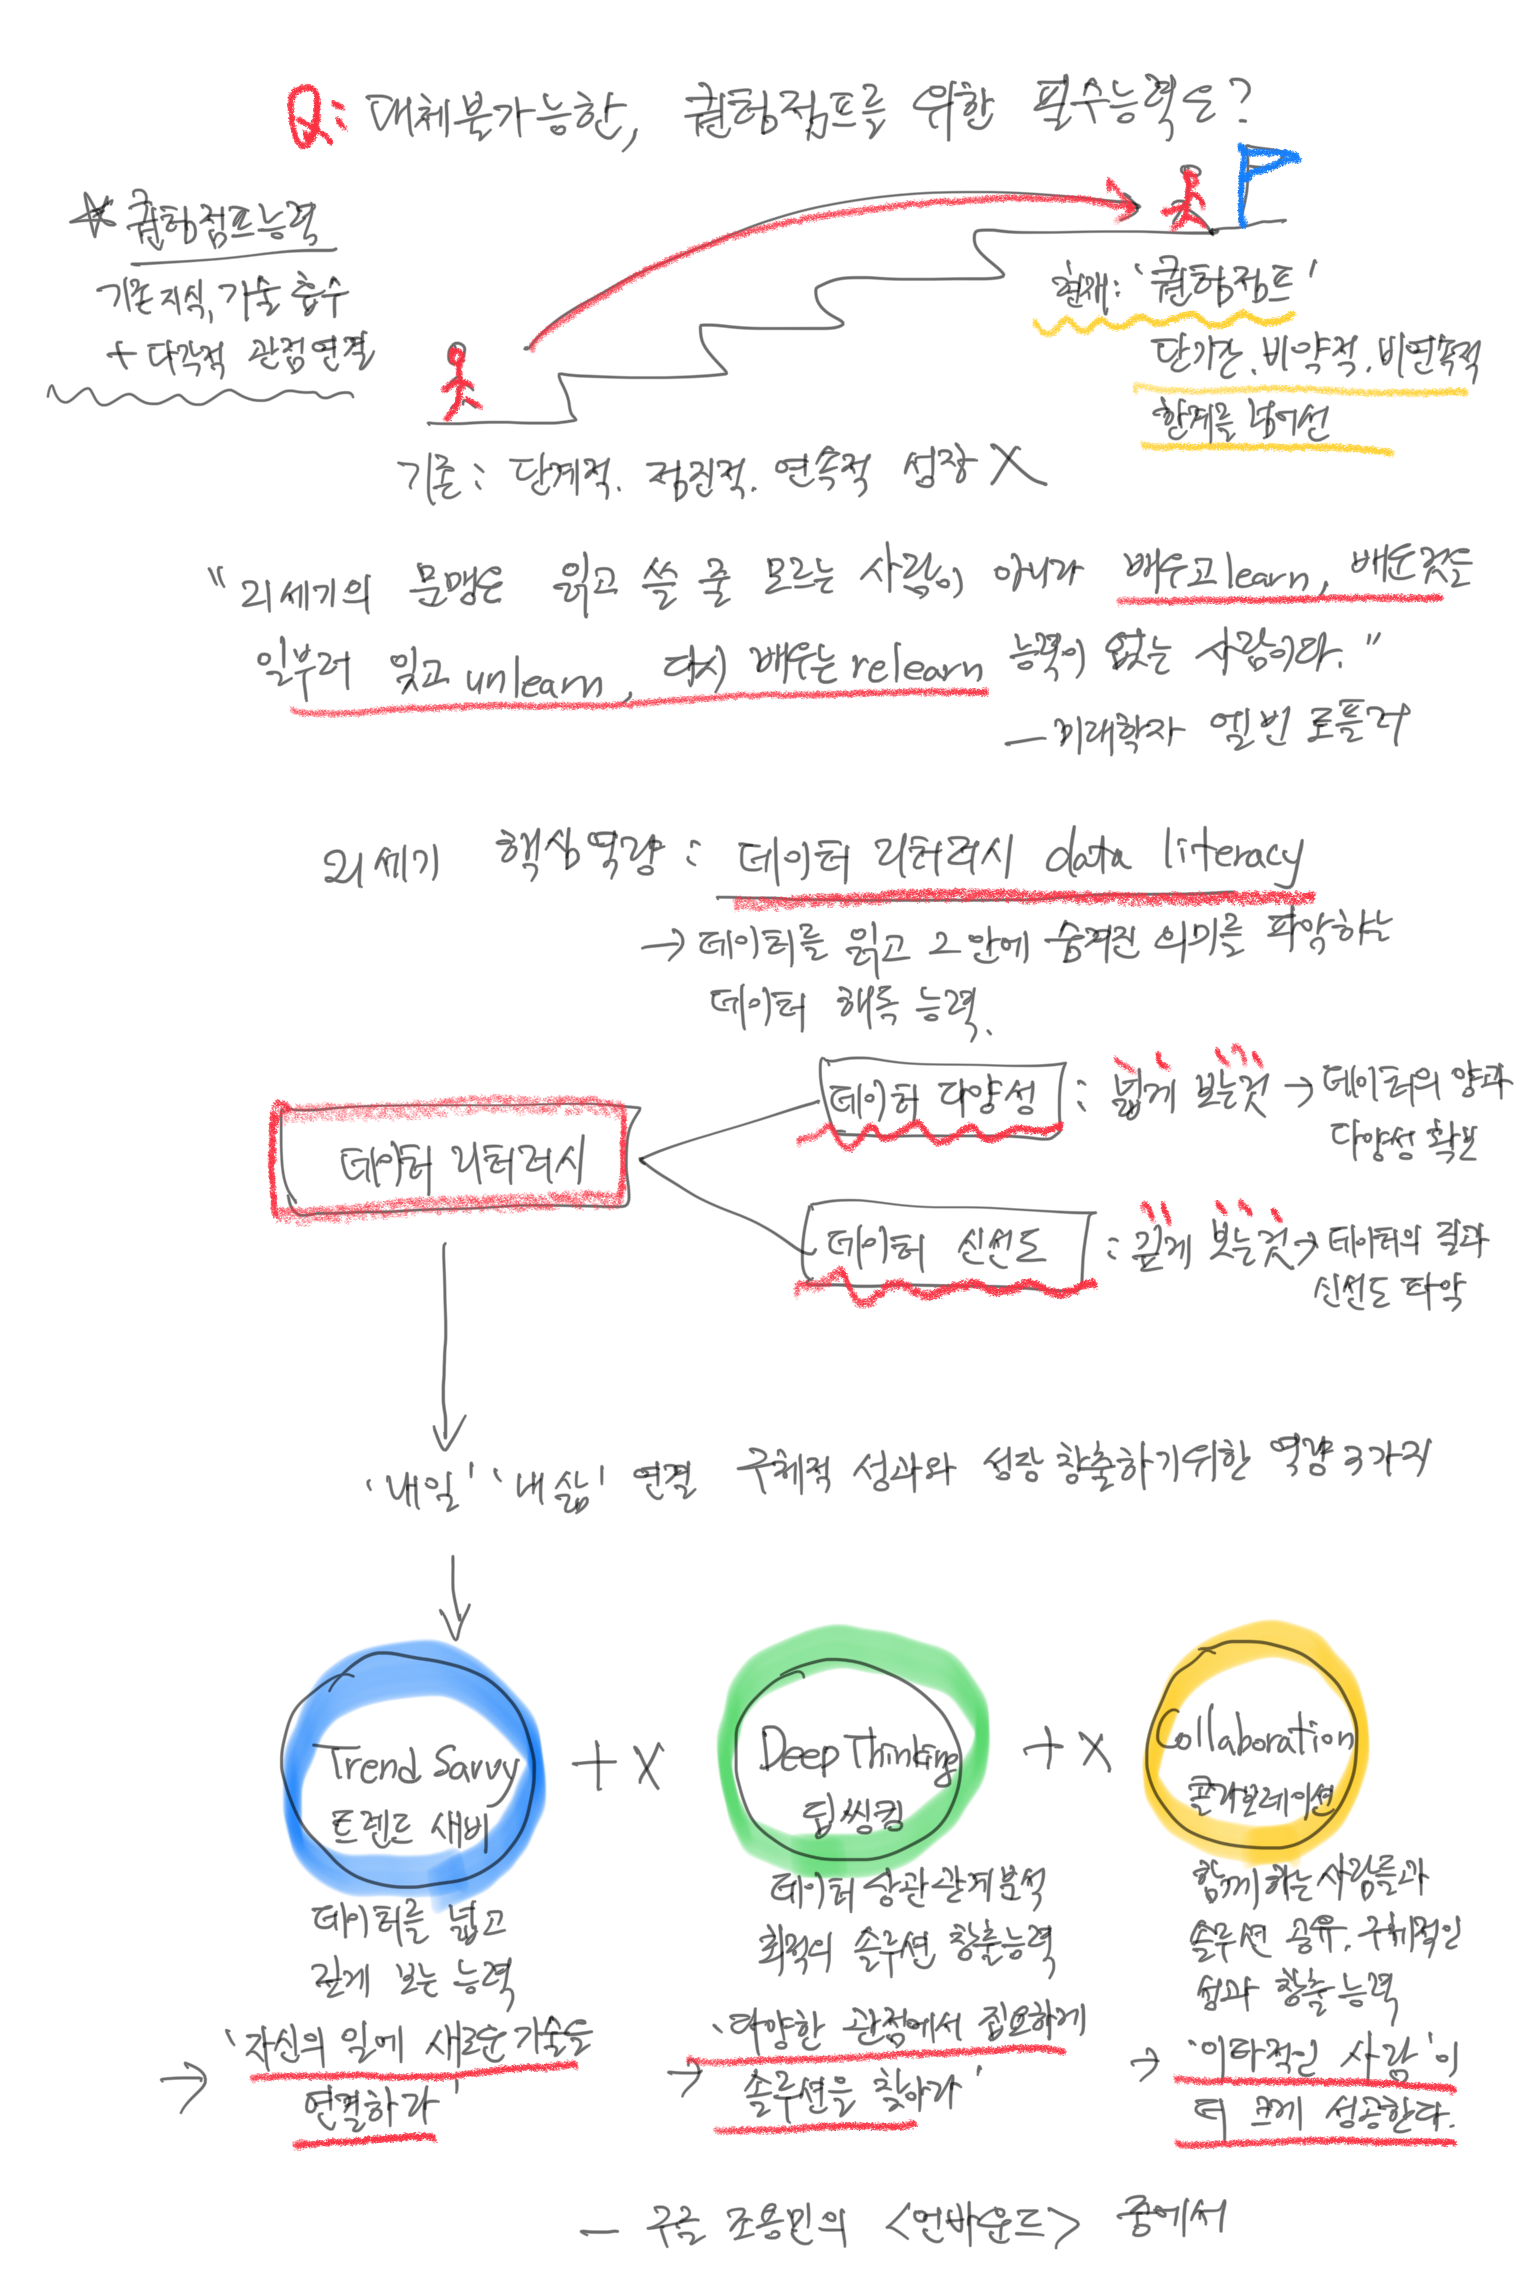 Q: 대체불가능한, 퀀텀점프를 위한 필수능력은?
☆ 퀀텀점프능력
기존지식, 기술 흡수
+ 다각적 관점연결
현재: '퀀텀점프'
단기간. 비약적. 비연속적
한계를 넘어선
기존: 단계적. 점진적. 연속적 성장 X
"21세기의 문맹은 읽고 쓸 줄 모르는 사람이 아니라 배우고 learn, 배운것은
일부러 잊고 unlearn, 다시 배우는 relearn 능력이 없는 사람이다."
— 미래학자 엘빈 토플러
21세기 핵심역량: 데이터 리터러시 data literacy
→ 데이터를 읽고 그 안에 숨겨진 의미를 파악하는
데이터 해독 능력.
데이터 리터러시
데이터 다양성 : 넓게 보는것 → 데이터의 양과
다양성 확보
데이터 신선도 : 깊게 보는것 → 데이터의 질과
신선도 파악
'내일' '내 삶' 연결 구체적 성과와 성장 창출하기위한 역량 3가지
Trend Savvy
트렌드 새비
+ X
Deep Thinking
딥씽킹
+ X
Collaboration
콜라보레이션
데이터를 넓고
깊게 보는 능력
→ '자신의 일에 새로운 기술을
연결하라'
데이터 상관관계분석
최적의 솔루션 창출능력
→ '다양한 관점에서 집요하게
솔루션을 찾아라'
함께하는 사람들과
솔루션 공유. 구체적인
성과 창출능력
→ '이타적인 사람'이
더 크게 성공한다.
— 구글 조용민의 <언바운드> 중에서